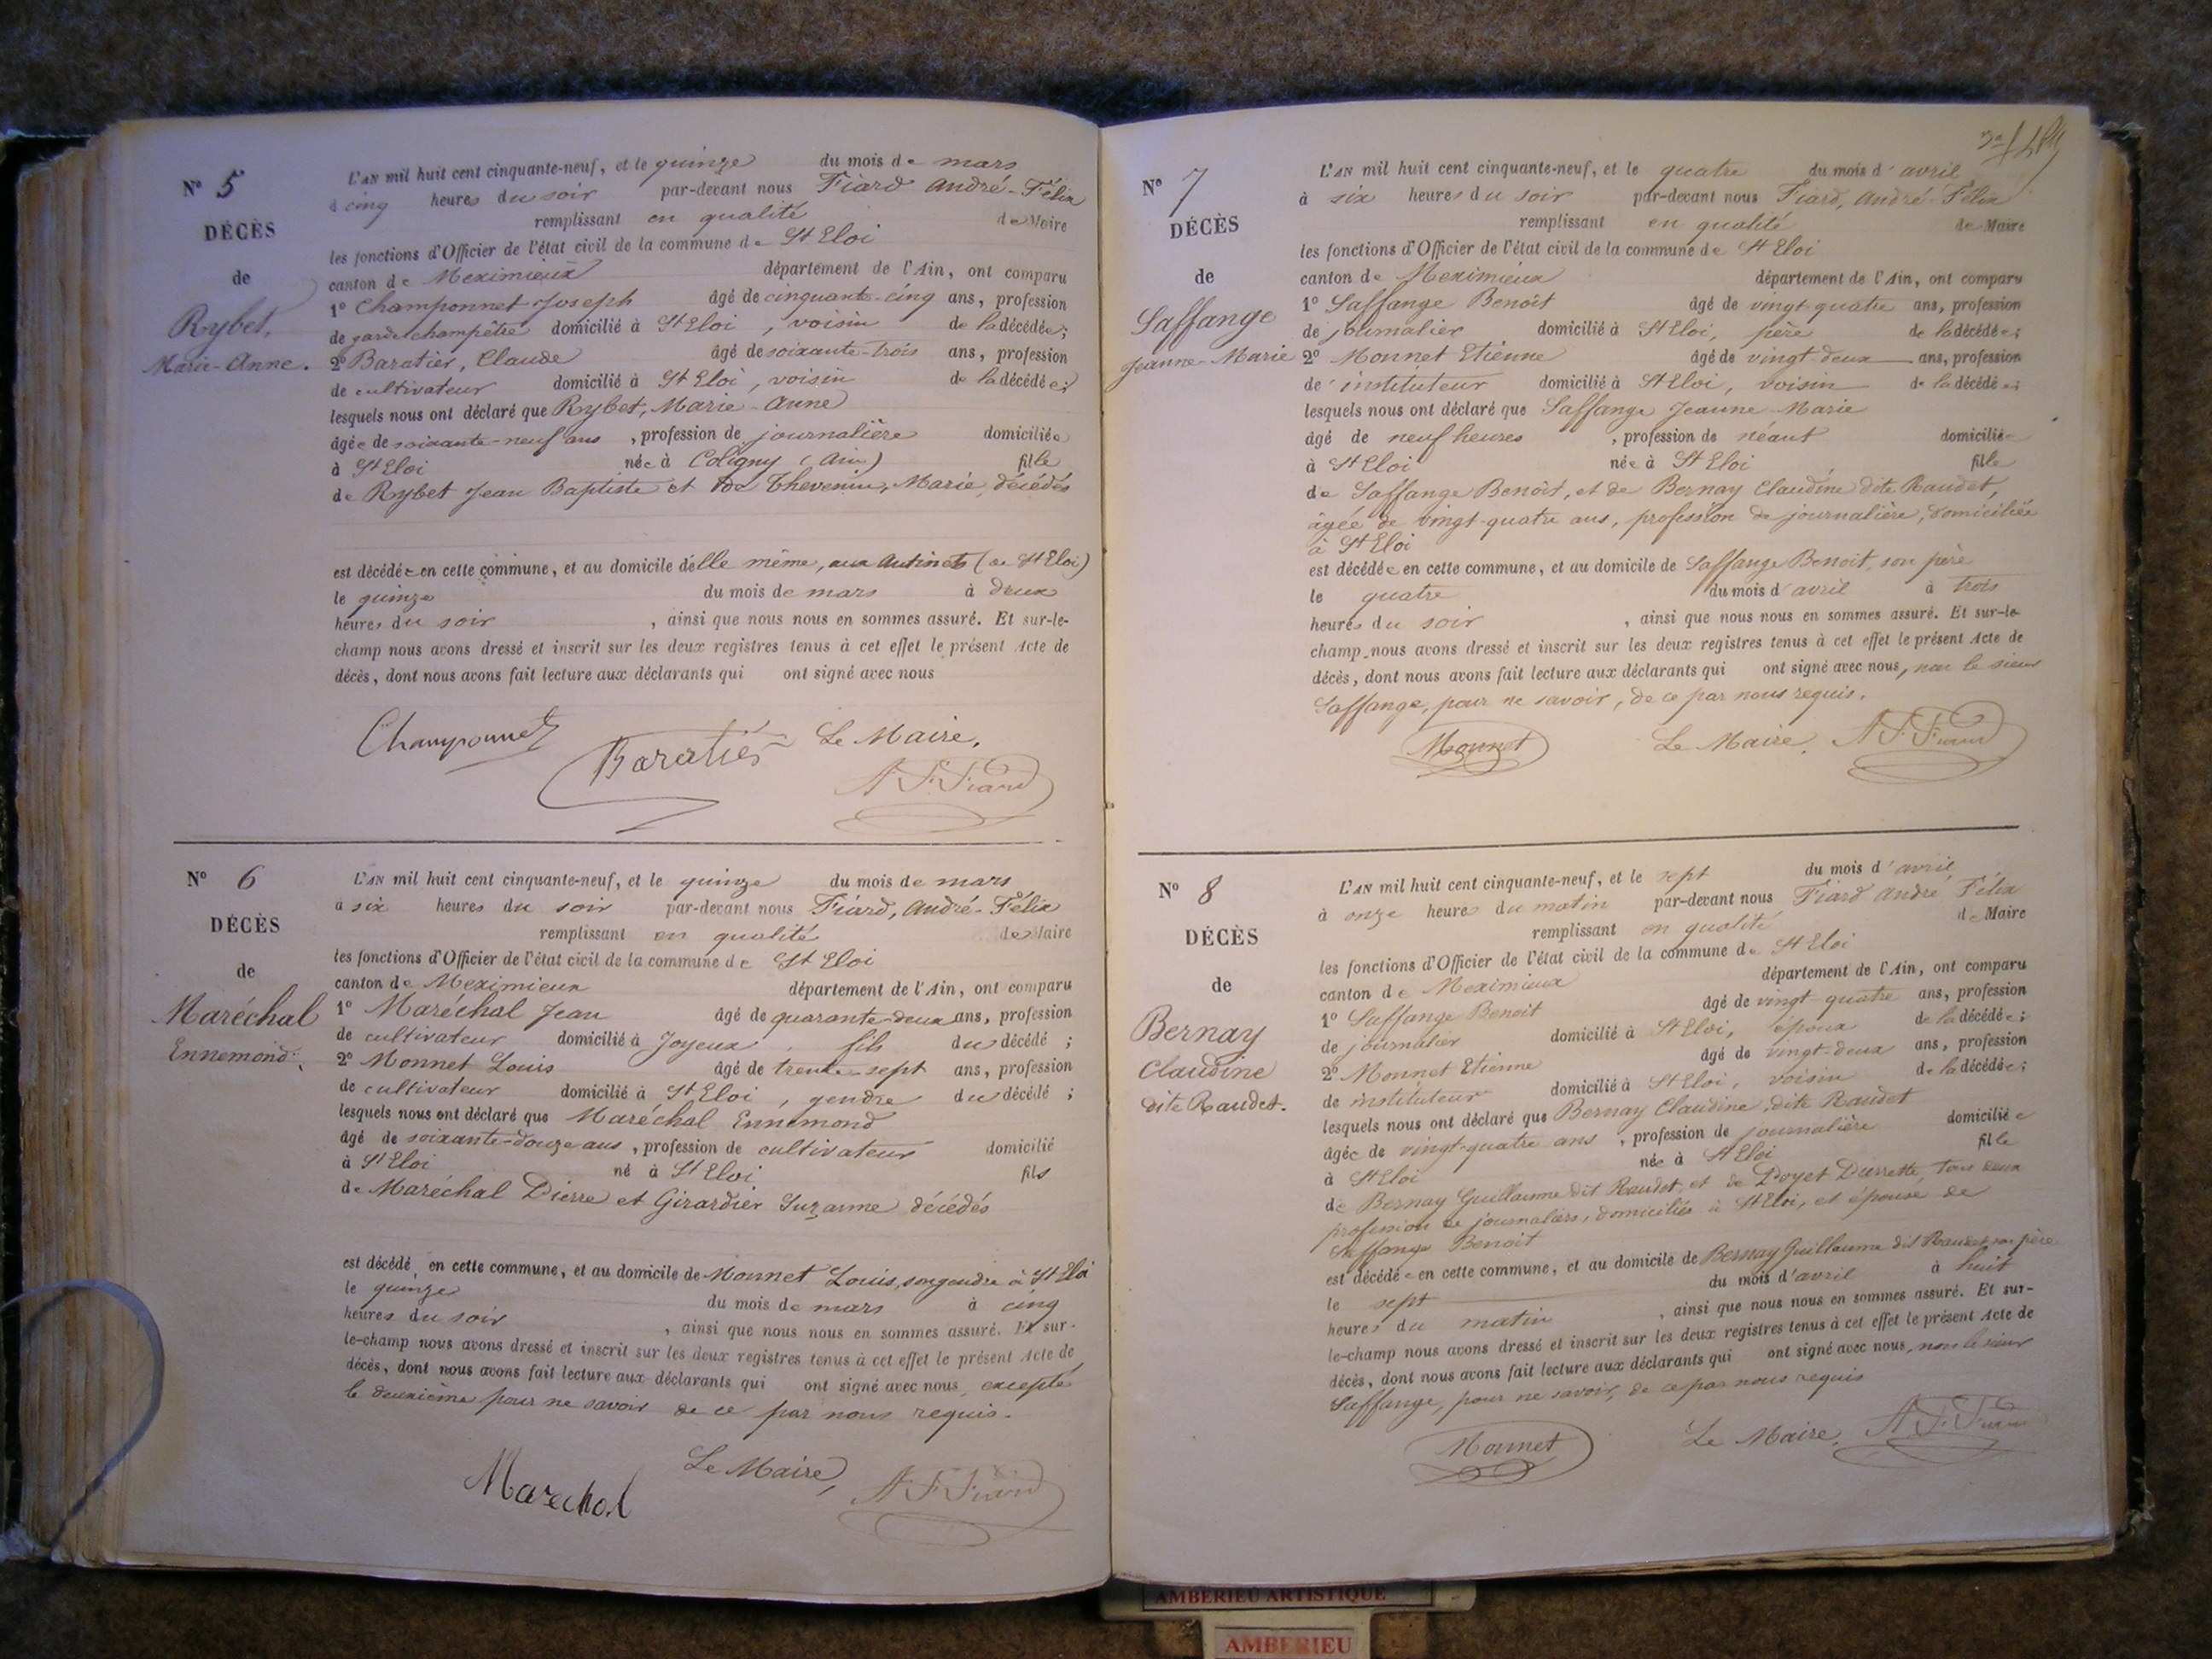 Nº 5
DÉCÈS
de
Rybet,
Marie-Anne.
L'AN mil huit cent cinquante-neuf, et le quinze du mois de mars
à cinq heures du soir par-devant nous Fiard André-Félix
remplissant en qualité de Maire
les fonctions d'Officier de l'état civil de la commune de St Eloi
canton de Meximieux département de l'Ain, ont comparu
1º Champonnet Joseph âgé de cinquante-cinq ans, profession
de garde champêtre domicilié à St Eloi, voisin de la décédée;
2º Baratier, Claude âgé de soixante-trois ans, profession
de cultivateur domicilié à St Eloi, voisin de la décédée;
lesquels nous ont déclaré que Rybet, Marie-Anne
âgée de soixante-neuf ans, profession de journalière domiciliée
à St Eloi née à Coligny (Ain) fille
de Rybet Jean Baptiste et de Thevenin, Marie, décédés
est décédée en cette commune, et au domicile d'elle même, aux (de St Eloi)
le quinze du mois de mars à deux
heures du soir, ainsi que nous nous en sommes assuré. Et sur-le-
champ nous avons dressé et inscrit sur les deux registres tenus à cet effet le présent Acte de
décès, dont nous avons fait lecture aux déclarants qui ont signé avec nous
Champonnet
Baratier
Le Maire,
A F. Fiard
Nº 6
DÉCÈS
de
Maréchal
Ennemond.
L'AN mil huit cent cinquante-neuf, et le quinze du mois de mars
à six heures du soir par-devant nous Fiard, André-Félix
remplissant en qualité de Maire
les fonctions d'Officier de l'état civil de la commune de St Eloi
canton de Meximieux département de l'Ain, ont comparu
1º Maréchal Jean âgé de quarante-deux ans, profession
de cultivateur domicilié à Joyeux, fils du décédé;
2º Monnet Louis âgé de trente-sept ans, profession
de cultivateur domicilié à St Eloi, gendre du décédé;
lesquels nous ont déclaré que Maréchal Ennemond
âgé de soixante-douze ans, profession de cultivateur domicilié
à St Eloi né à St Eloi fils
de Maréchal Pierre et Girardier Suzanne décédés
est décédé en cette commune, et au domicile de Monnet Louis, son gendre à St Eloi
le quinze du mois de mars à cinq
heures du soir, ainsi que nous nous en sommes assuré. Et sur-
le-champ nous avons dressé et inscrit sur les deux registres tenus à cet effet le présent Acte de
décès, dont nous avons fait lecture aux déclarants qui ont signé avec nous, excepté
le deuxième pour ne savoir de ce par nous requis.
Le Maire,
Marechal
A F. Fiard
Nº 7
DÉCÈS
de
Saffange
Jeanne-Marie
L'AN mil huit cent cinquante-neuf, et le quatre du mois d'avril
à six heures du soir par-devant nous Fiard, André-Félix
remplissant en qualité de Maire
les fonctions d'Officier de l'état civil de la commune de St Eloi
canton de Meximieux département de l'Ain, ont comparu
1º Saffange Benoit âgé de vingt-quatre ans, profession
de journalier domicilié à St Eloi, père de la décédée;
2º Monnet Etienne âgé de vingt-deux ans, profession
de instituteur domicilié à St Eloi, voisin de la décédée;
lesquels nous ont déclaré que Saffange Jeanne-Marie
âgé de neuf heures, profession de néant domiciliée
à St Eloi née à St Eloi fille
de Saffange Benoit, et de Bernay Claudine dite Raudet,
âgée de vingt-quatre ans, profession de journalière, domiciliée
à St Eloi
est décédée en cette commune, et au domicile de Saffange Benoit, son père
le quatre du mois d'avril à trois
heures du soir, ainsi que nous nous en sommes assuré. Et sur-le-
champ nous avons dressé et inscrit sur les deux registres tenus à cet effet le présent Acte de
décès, dont nous avons fait lecture aux déclarants qui ont signé avec nous, non le sieur
Saffange, pour ne savoir, de ce par nous requis.
Monnet
Le Maire,
A F. Fiard
Nº 8
DÉCÈS
de
Bernay
Claudine
dite Raudet.
L'AN mil huit cent cinquante-neuf, et le sept du mois d'avril
à onze heures du matin par-devant nous Fiard André Félix
remplissant en qualité de Maire
les fonctions d'Officier de l'état civil de la commune de St Eloi
canton de Meximieux département de l'Ain, ont comparu
1º Saffange Benoit âgé de vingt quatre ans, profession
de journalier domicilié à St Eloi, époux de la décédée;
2º Monnet Etienne âgé de vingt-deux ans, profession
de instituteur domicilié à St Eloi, voisin de la décédée;
lesquels nous ont déclaré que Bernay Claudine, dite Raudet
âgée de vingt-quatre ans, profession de journalière domiciliée
à St Eloi née à St Eloi fille
de Bernay Guillaume dit Raudet, et de Poyet Pierrette, tous deux
profession de journaliers, domiciliés à St Eloi, et épouse de
Saffange Benoit
est décédée en cette commune, et au domicile de Bernay Guillaume dit Raudet, son père
le sept du mois d'avril à huit
heures du matin, ainsi que nous nous en sommes assuré. Et sur-
le-champ nous avons dressé et inscrit sur les deux registres tenus à cet effet le présent Acte de
décès, dont nous avons fait lecture aux déclarants qui ont signé avec nous, non le sieur
Saffange, pour ne savoir, de ce par nous requis
Monnet
Le Maire,
A. F. Fiard
AMBERIEU ARTISTIQUE
AMBERIEU